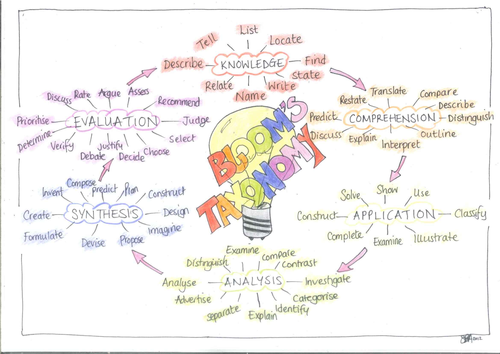 List
Tell
Locate
Describe
KNOWLEDGE
Find
State
Relate
Write
Name
Translate
Restate
Compare
Describe
Predict
COMPREHENSION
Distinguish
Discuss
Explain
Interpret
Outline
Show
Solve
Use
Construct
APPLICATION
Classify
Complete
Examine
Illustrate
Examine
Distinguish
Compare
Contrast
Analyse
ANALYSIS
Investigate
Advertise
Categorise
Separate
Explain
Identify
Compose
Invent
predict
Plan
Construct
Create
SYNTHESIS
Design
Formulate
Devise
Propose
Imagine
Discuss
Rate
Argue
Assess
Recommend
Prioritise
EVALUATION
Judge
Determine
Verify
Justify
Debate
Decide
Choose
Select
BLOOM'S
TAXONOMY